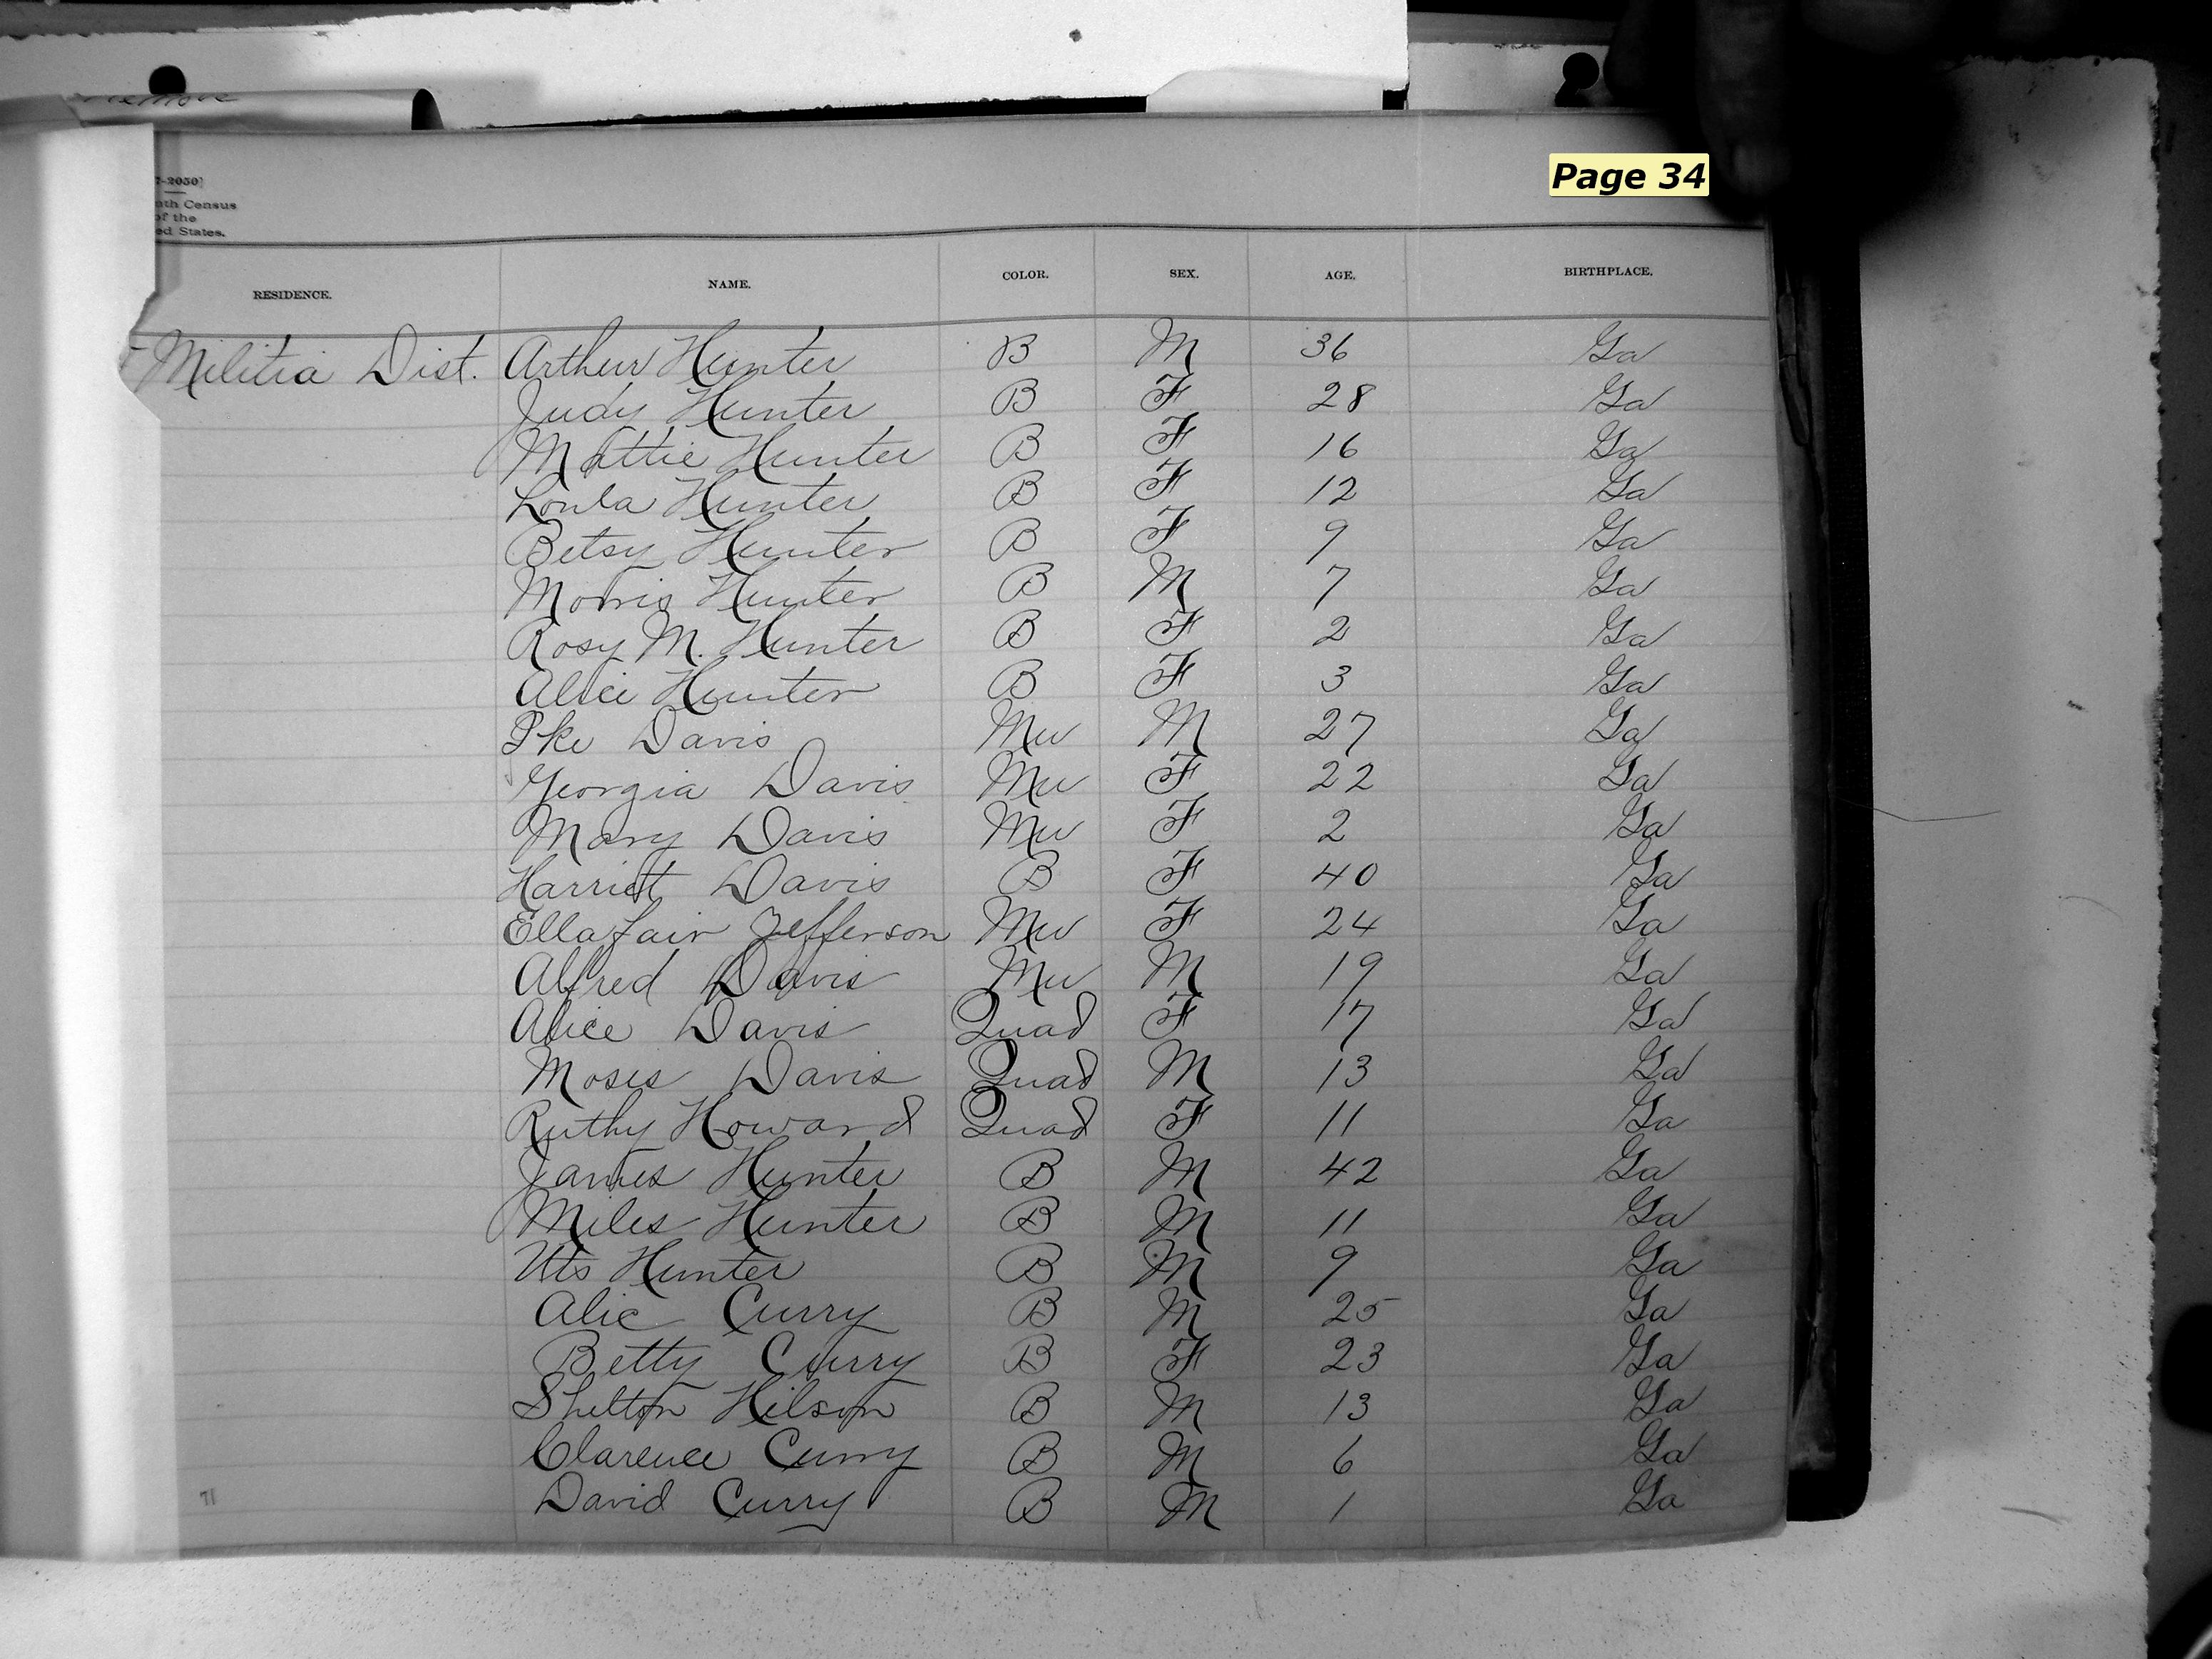 Remove
Page 34
7-2050]
nth Census
of the
ed States.
RESIDENCE. NAME. COLOR. SEX. AGE. BIRTHPLACE.
Militia Dist. Arthur Hunter B M 36 Ga
Judy Hunter B F 28 Ga
Mattie Hunter B F 16 Ga
Loula Hunter B F 12 Ga
Betsy Hunter B F 9 Ga
Morris Hunter B M 7 Ga
Rosy M. Hunter B F 2 Ga
Alice Hunter B F 3 Ga
Ike Davis Mu M 27 Ga
Georgia Davis Mu F 22 Ga
Mary Davis Mu F 2 Ga
Harriet Davis B F 40 Ga
Ellafair Jefferson Mu F 24 Ga
Alfred Davis Mu M 19 Ga
Alice Davis Quad F 17 Ga
Moses Davis Quad M 13 Ga
Ruthy Howard Quad F 11 Ga
James Hunter B M 42 Ga
Miles Hunter B M 11 Ga
Hunter B M 9 Ga
Alic Curry B M 25 Ga
Betty Curry B F 23 Ga
Shelton Hilson B M 13 Ga
Clarence Curry B M 6 Ga
David Curry B M 1 Ga
71